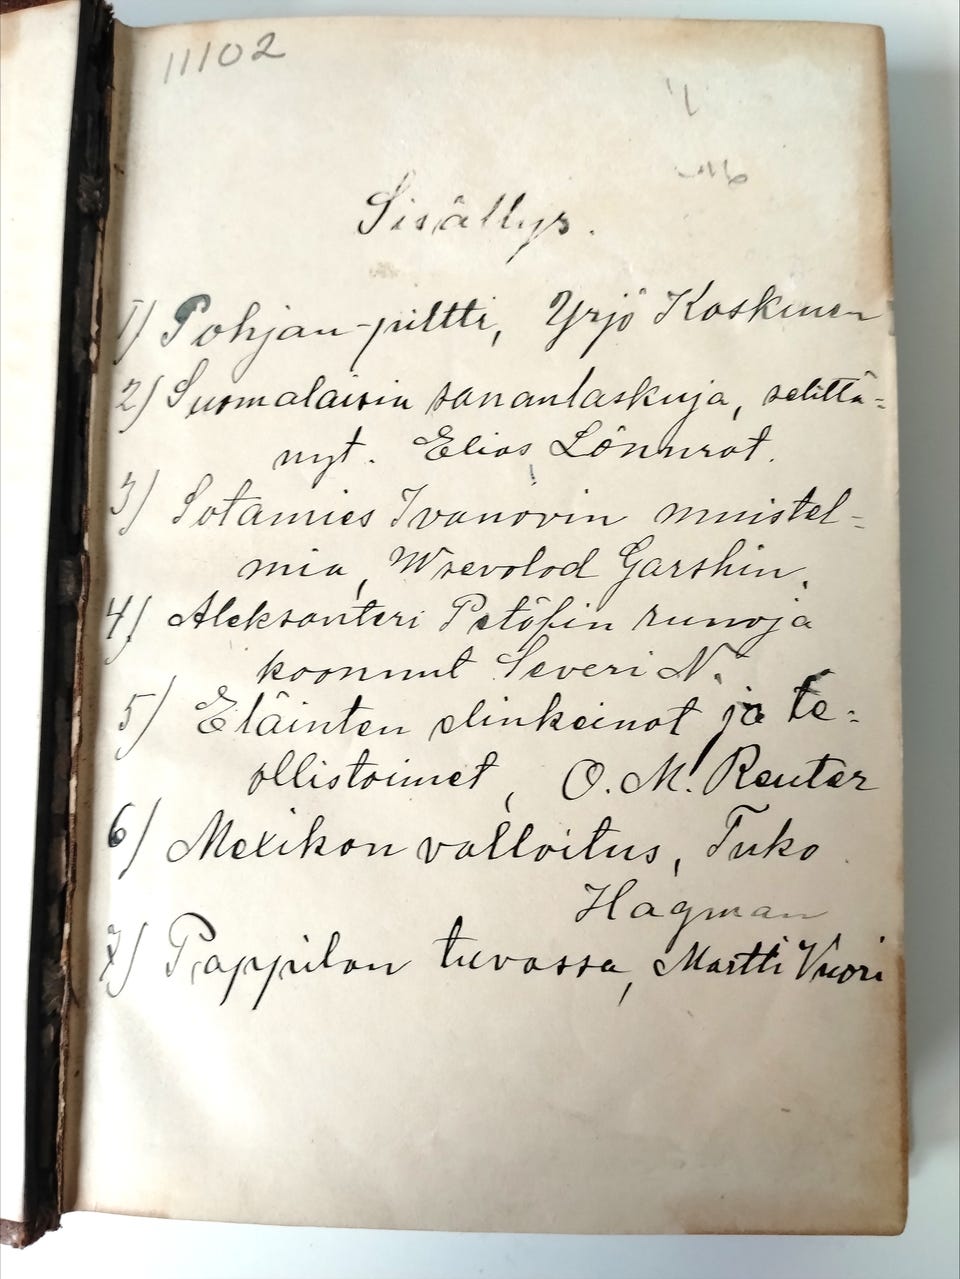 11102
Sisällys.
1) Pohjan-piltti, Yrjö Koskinen
2) Suomalaisia sananlaskuja, selittä=
nyt. Elias Lönnrot.
3) Sotamies Ivanovin muistel=
mia, Wsevolod Garshin.
4) Aleksanteri Petöfin runoja
koonnut Severi N.
5) Eläinten elinkeinot ja te=
ollistoimet, O. M. Reuter
6) Mexikon valloitus, Tuko
Hagman
7) Pappilan tuvassa, Martti Vuori